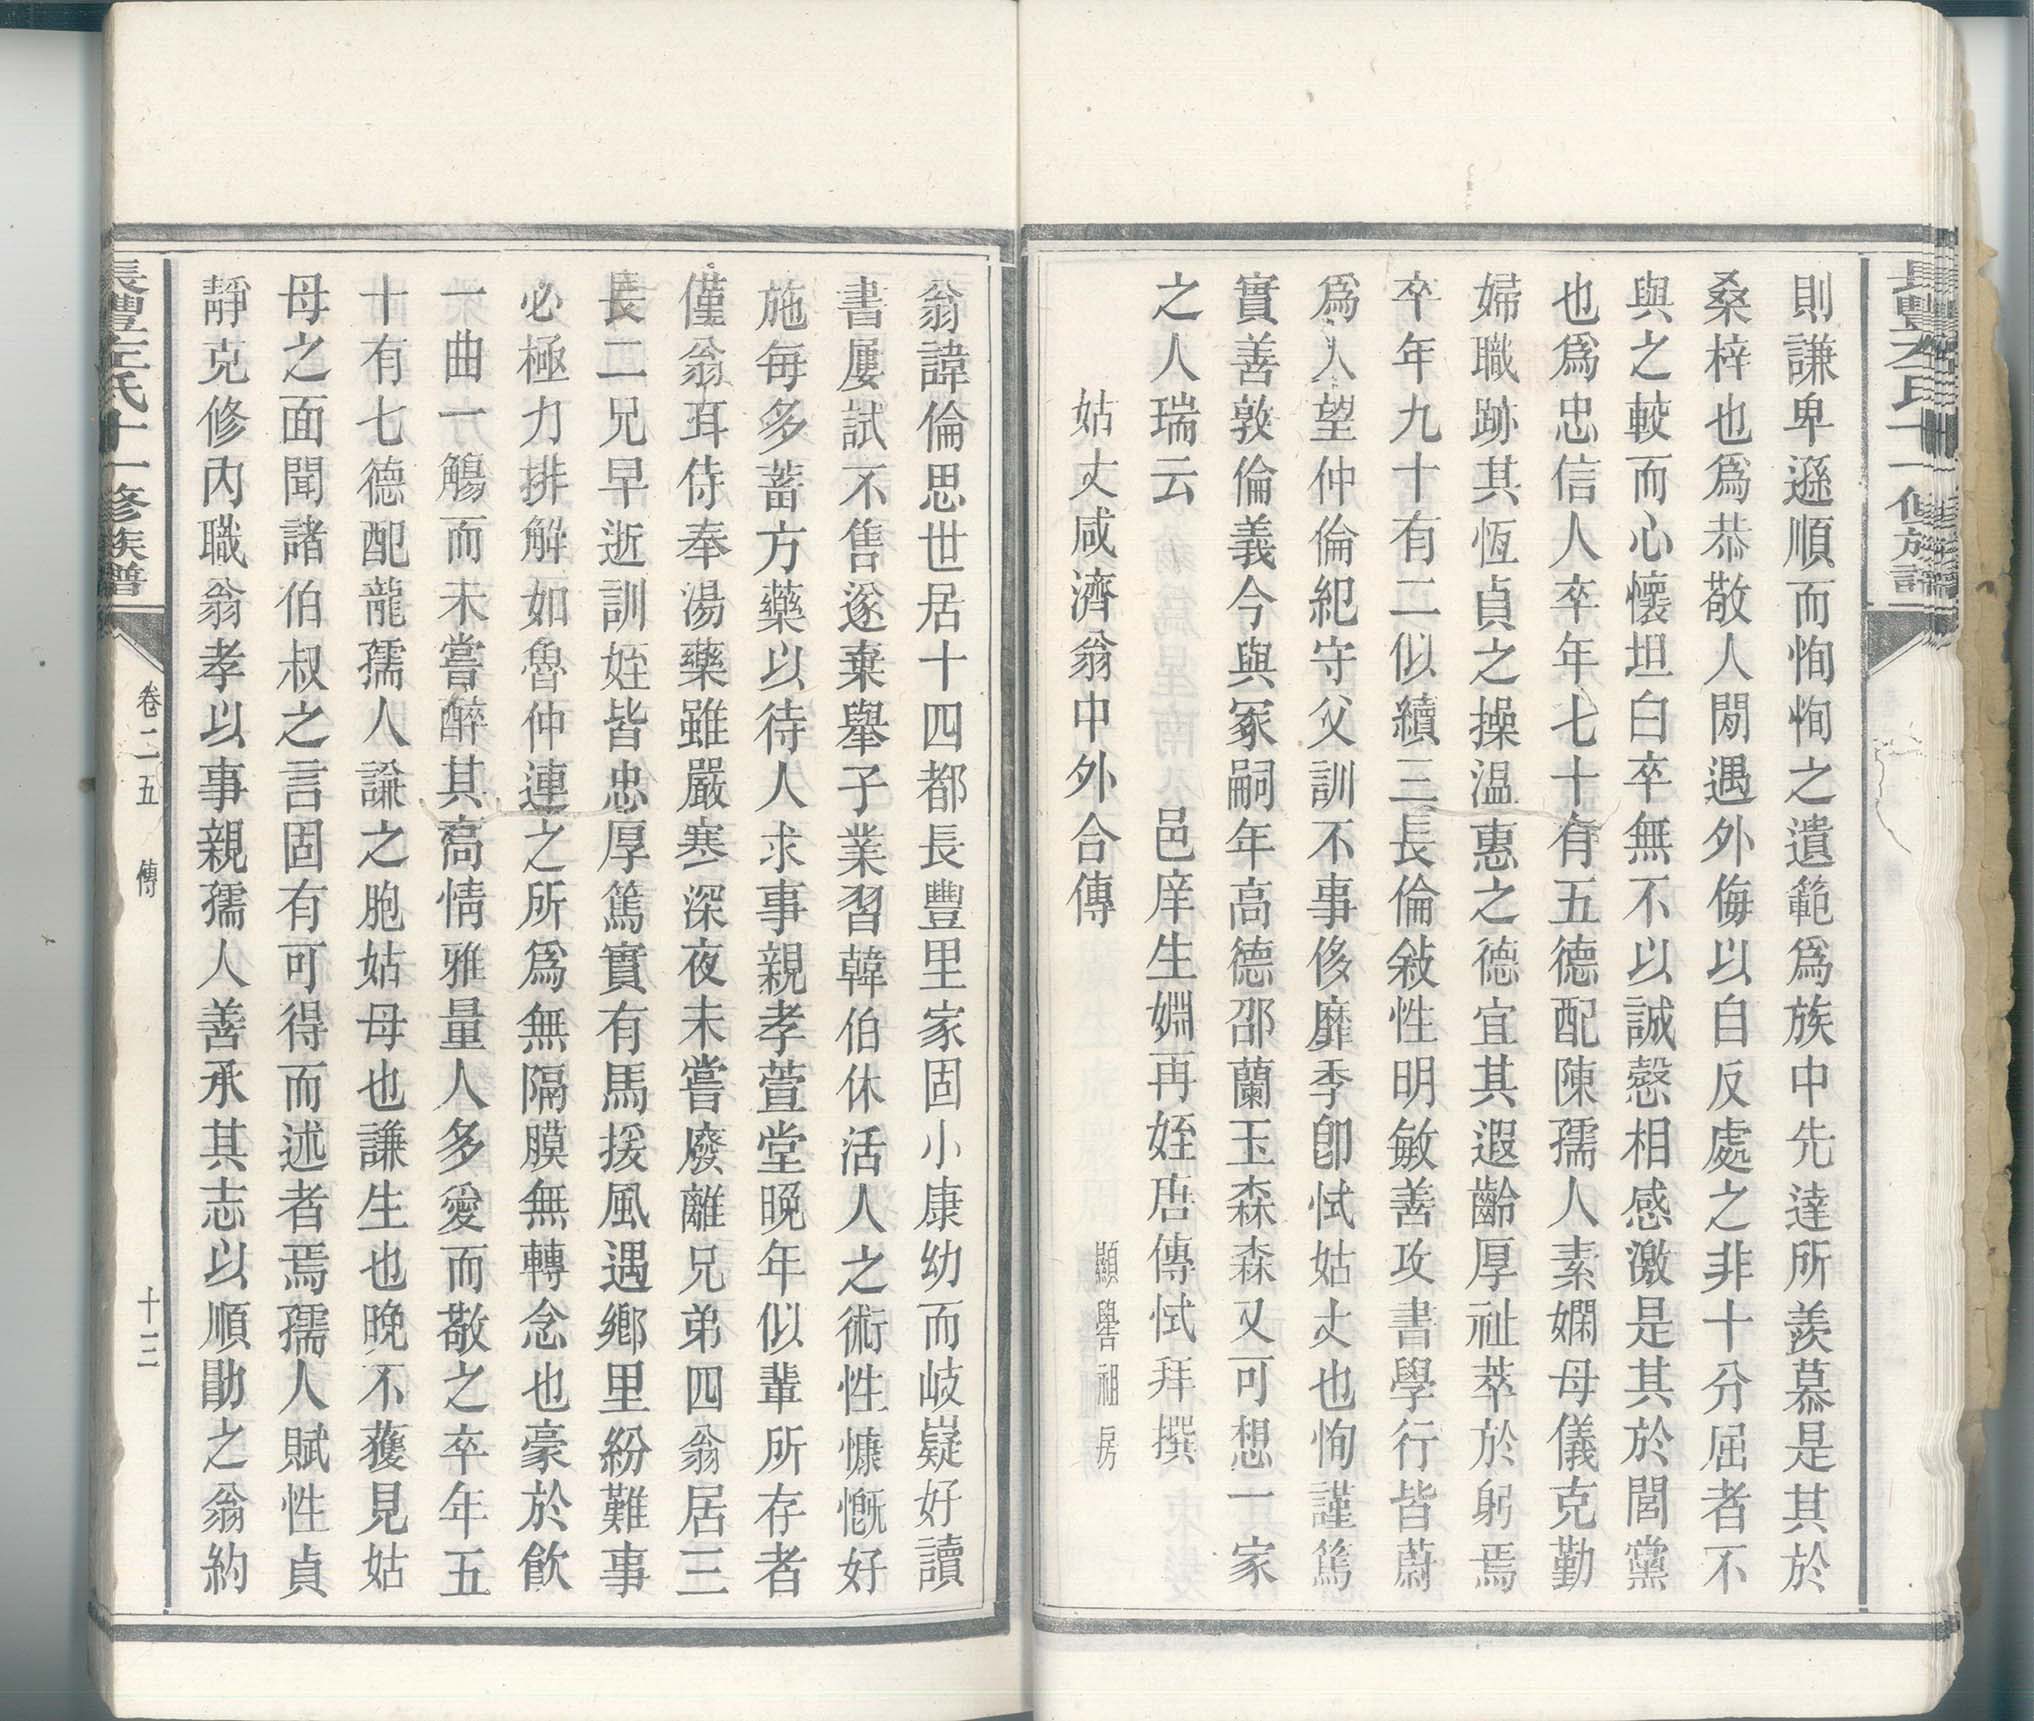 則謙卑遜順而恂恂之遺範爲族中先達所羨慕是其於
桑梓也爲恭敬人閒遇外侮以自反處之非十分屈者不
與之較而心懷坦白卒無不以誠慤相感激是其於閭黨
也爲忠信人卒年七十有五德配陳孺人素嫻母儀克勤
婦職跡其恆貞之操温惠之德宜其遐齡厚祉萃於躬焉
卒年九十有二似續三長倫敍性明敏善攻書學行皆蔚
爲人望仲倫紀守父訓不事侈靡季卽恜姑丈也恂謹篤
實善敦倫義今與冢嗣年高德邵蘭玉森森又可想一家
之人瑞云 邑庠生婣再姪唐傳恜拜撰
姑丈咸濟翁中外合傳 顯譽祖房
翁諱倫思世居十四都長豐里家固小康幼而岐嶷好讀
書屢試不售遂棄舉子業習韓伯休活人之術性慷慨好
施每多蓄方藥以待人求事親孝萱堂晚年似輩所存者
僅翁耳侍奉湯藥雖嚴寒深夜未嘗廢離兄弟四翁居三
長二兄早逝訓姪皆忠厚篤實有馬援風遇鄉里紛難事
必極力排解如魯仲連之所爲無隔膜無轉念也豪於飲
一曲一觴而未嘗醉其高情雅量人多愛而敬之卒年五
十有七德配龍孺人謙之胞姑母也謙生也晚不獲見姑
母之面聞諸伯叔之言固有可得而述者焉孺人賦性貞
靜克修內職翁孝以事親孺人善承其志以順勖之翁約
長豐左氏十一修族譜 卷二五 傳 十三